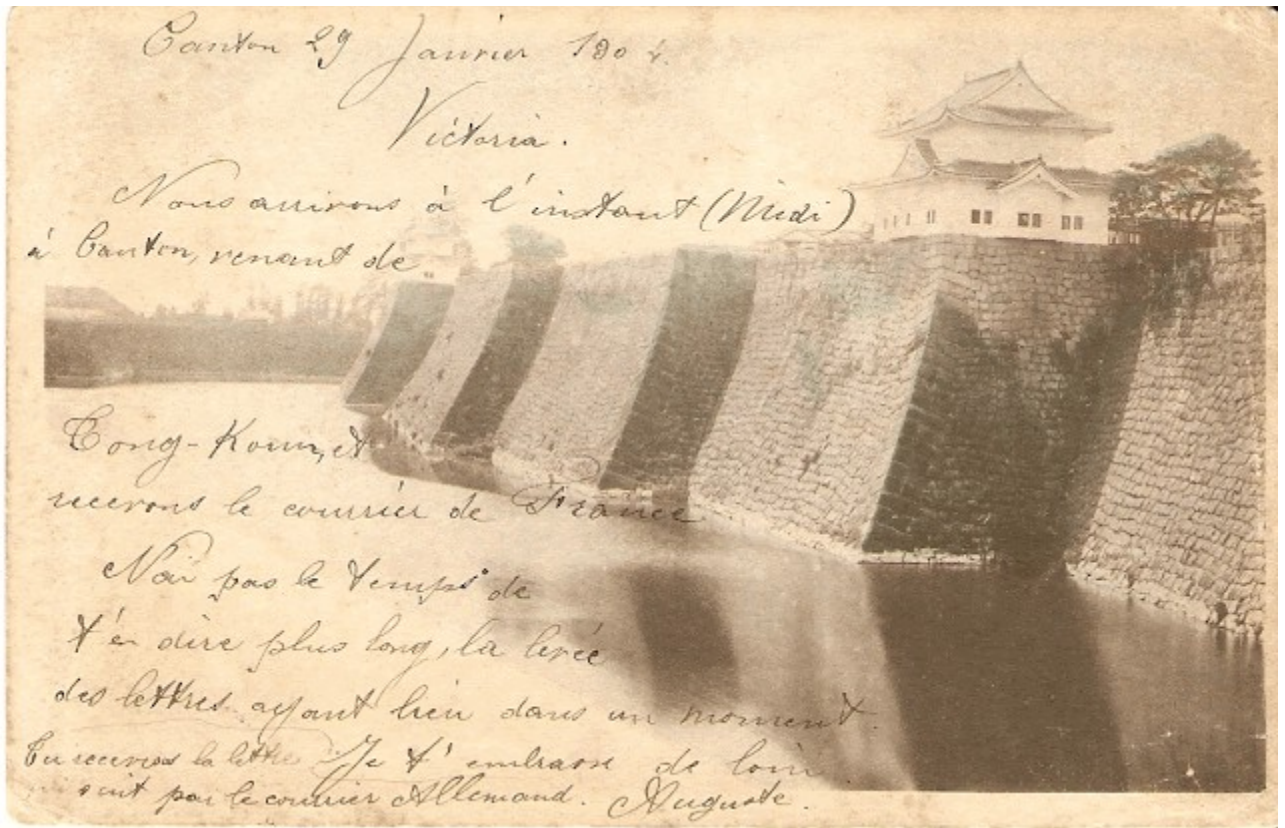 Canton 29 Janvier 1904.
Victoria.
Nous arrivons à l'instant (Midi)
à Canton, venant de
Tong-Koun, et
recevons le courrier de France
N'ai pas le temps de
t'en dire plus long, la levée
des lettres ayant lieu dans un moment.
Tu recevras la lettre Je t'embrasse de loin
suit par le courrier Allemand. Auguste.